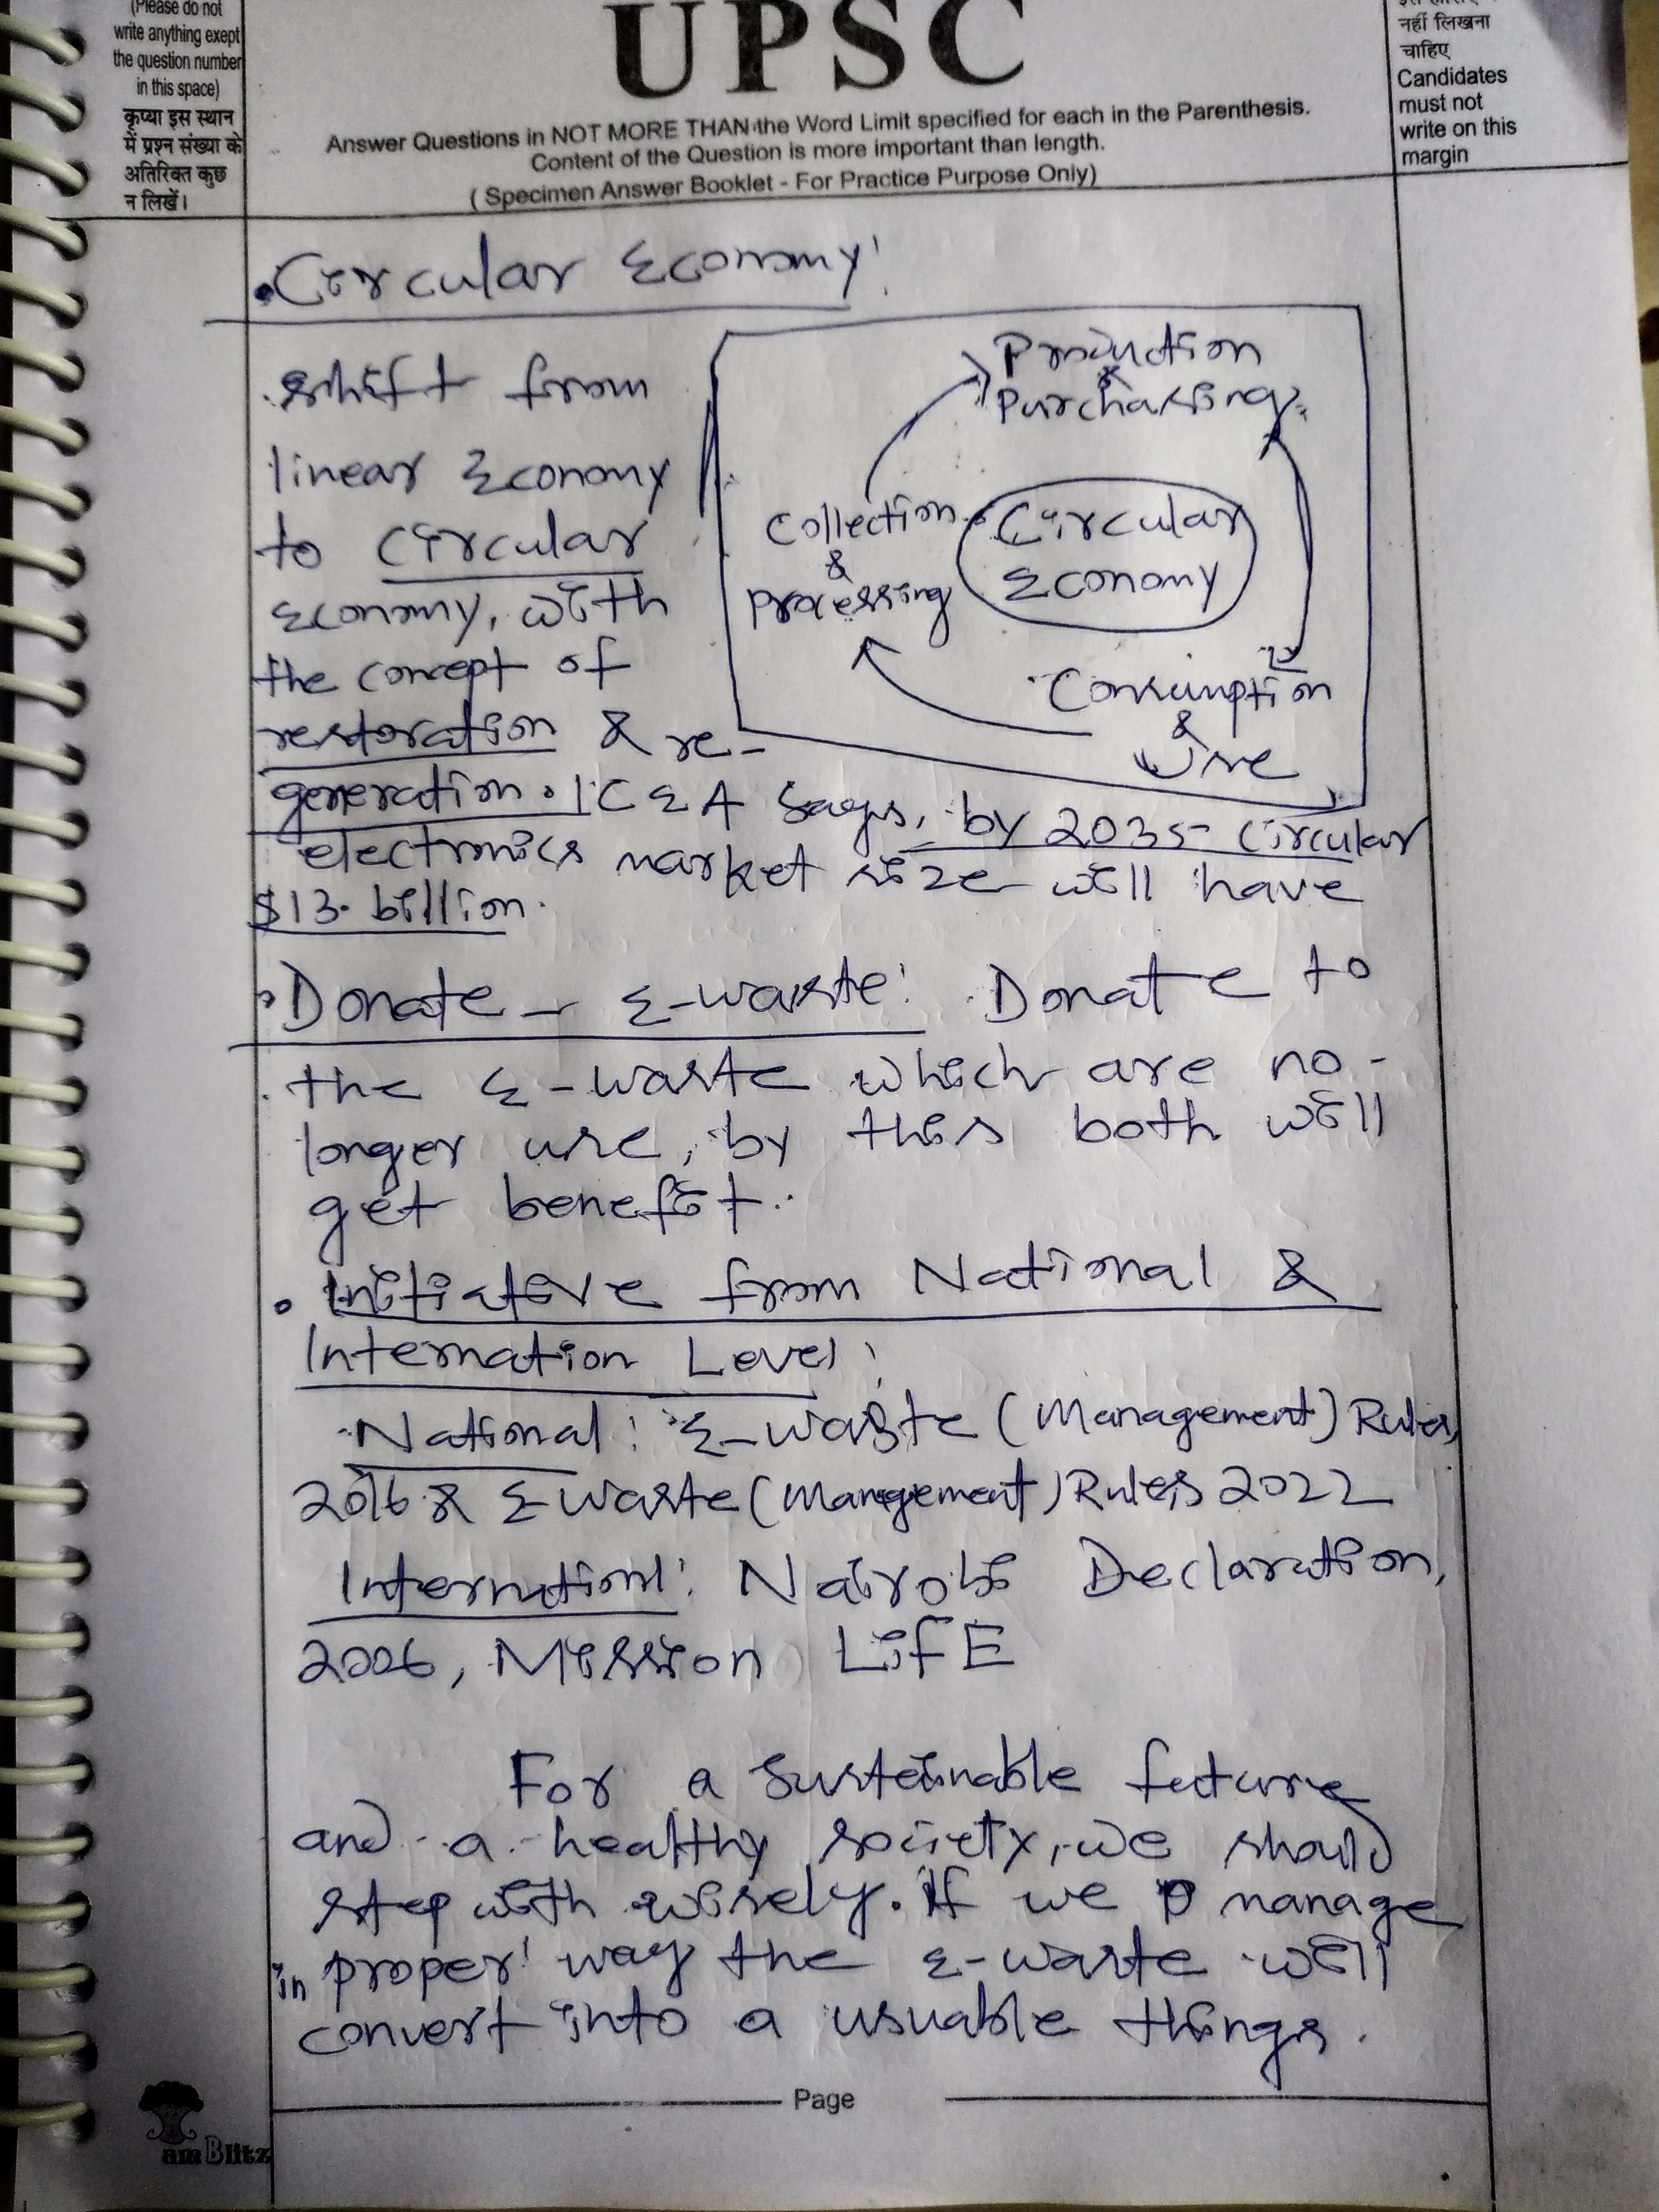 (Please do not
write anything exept
the question number
in this space)
कृप्या इस स्थान
में प्रश्न संख्या के
अतिरिक्त कुछ
न लिखें।
UPSC
Answer Questions in NOT MORE THAN the Word Limit specified for each in the Parenthesis.
Content of the Question is more important than length.
( Specimen Answer Booklet - For Practice Purpose Only)
नहीं लिखना
चाहिए
Candidates
must not
write on this
margin
• Circular Economy:
shift from
linear Economy
to circular
Economy, with
the concept of
restoration & re-
generation. ICEA says, by 2035 circular
electronics market size will have
$13 billion.
Production
&
Purchasing
Collection
&
Processing
Circular
Economy
Consumption
&
Use
• Donate - E-waste: Donate to
the E-waste which are no-
longer use, by this both will
get benefit.
• Initiative from National &
Internation Level:
National: E-waste (Management) Rules,
2016 & E waste (Management) Rules 2022
Internationl: Nairobi Declaration,
2006, Mission LifE
For a Sustainable future
and a healthy society, we should
step with wisely. If we manage
in proper way the E-waste will
convert into a usuable things.
Page
am Blitz